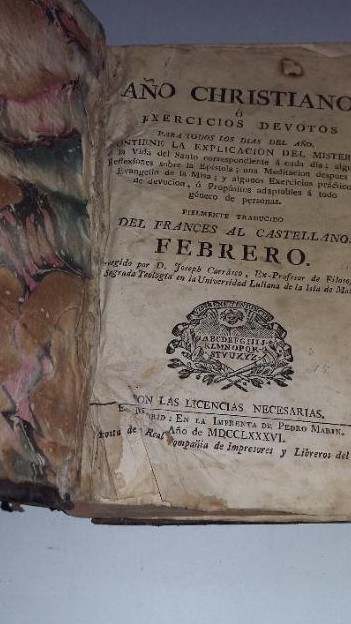 AÑO CHRISTIANO
Ó
EXERCICIOS DEVOTOS
PARA TODOS LOS DIAS DEL AÑO.
CONTIENE LA EXPLICACION DEL MISTER
la Vida del Santo correspondiente á cada dia; algu
Reflexiones sobre la Epístola; una Meditacion despues
Evangelio de la Misa; y algunos Exercicios práctico
de devocion, ó Propósitos adaptables á todo
género de personas.
FIELMENTE TRADUCIDO
DEL FRANCES AL CASTELLANO.
FEBRERO.
por D. Joseph Carrasco, Ex-Profesor de Filoso
Sagrada Teología en la Universidad Luliana de la Isla de Mal
ABCDEFGHIJ
KLMNOPQR
STVUXYZ
CON LAS LICENCIAS NECESARIAS.
En Madrid: En la Imprenta de Pedro Marin.
Año de MDCCLXXXVI.
costa de Real Compañia de Impresores y Libreros del